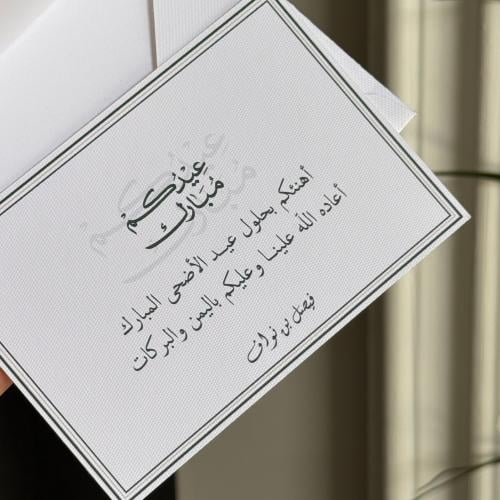 عِيْدُكُمْ
مُبَارَك
أهنئكم بحلول عيد الأضحى المبارك
أعاده الله علينا وعليكم باليمن والبركات
فيصل بن نواف